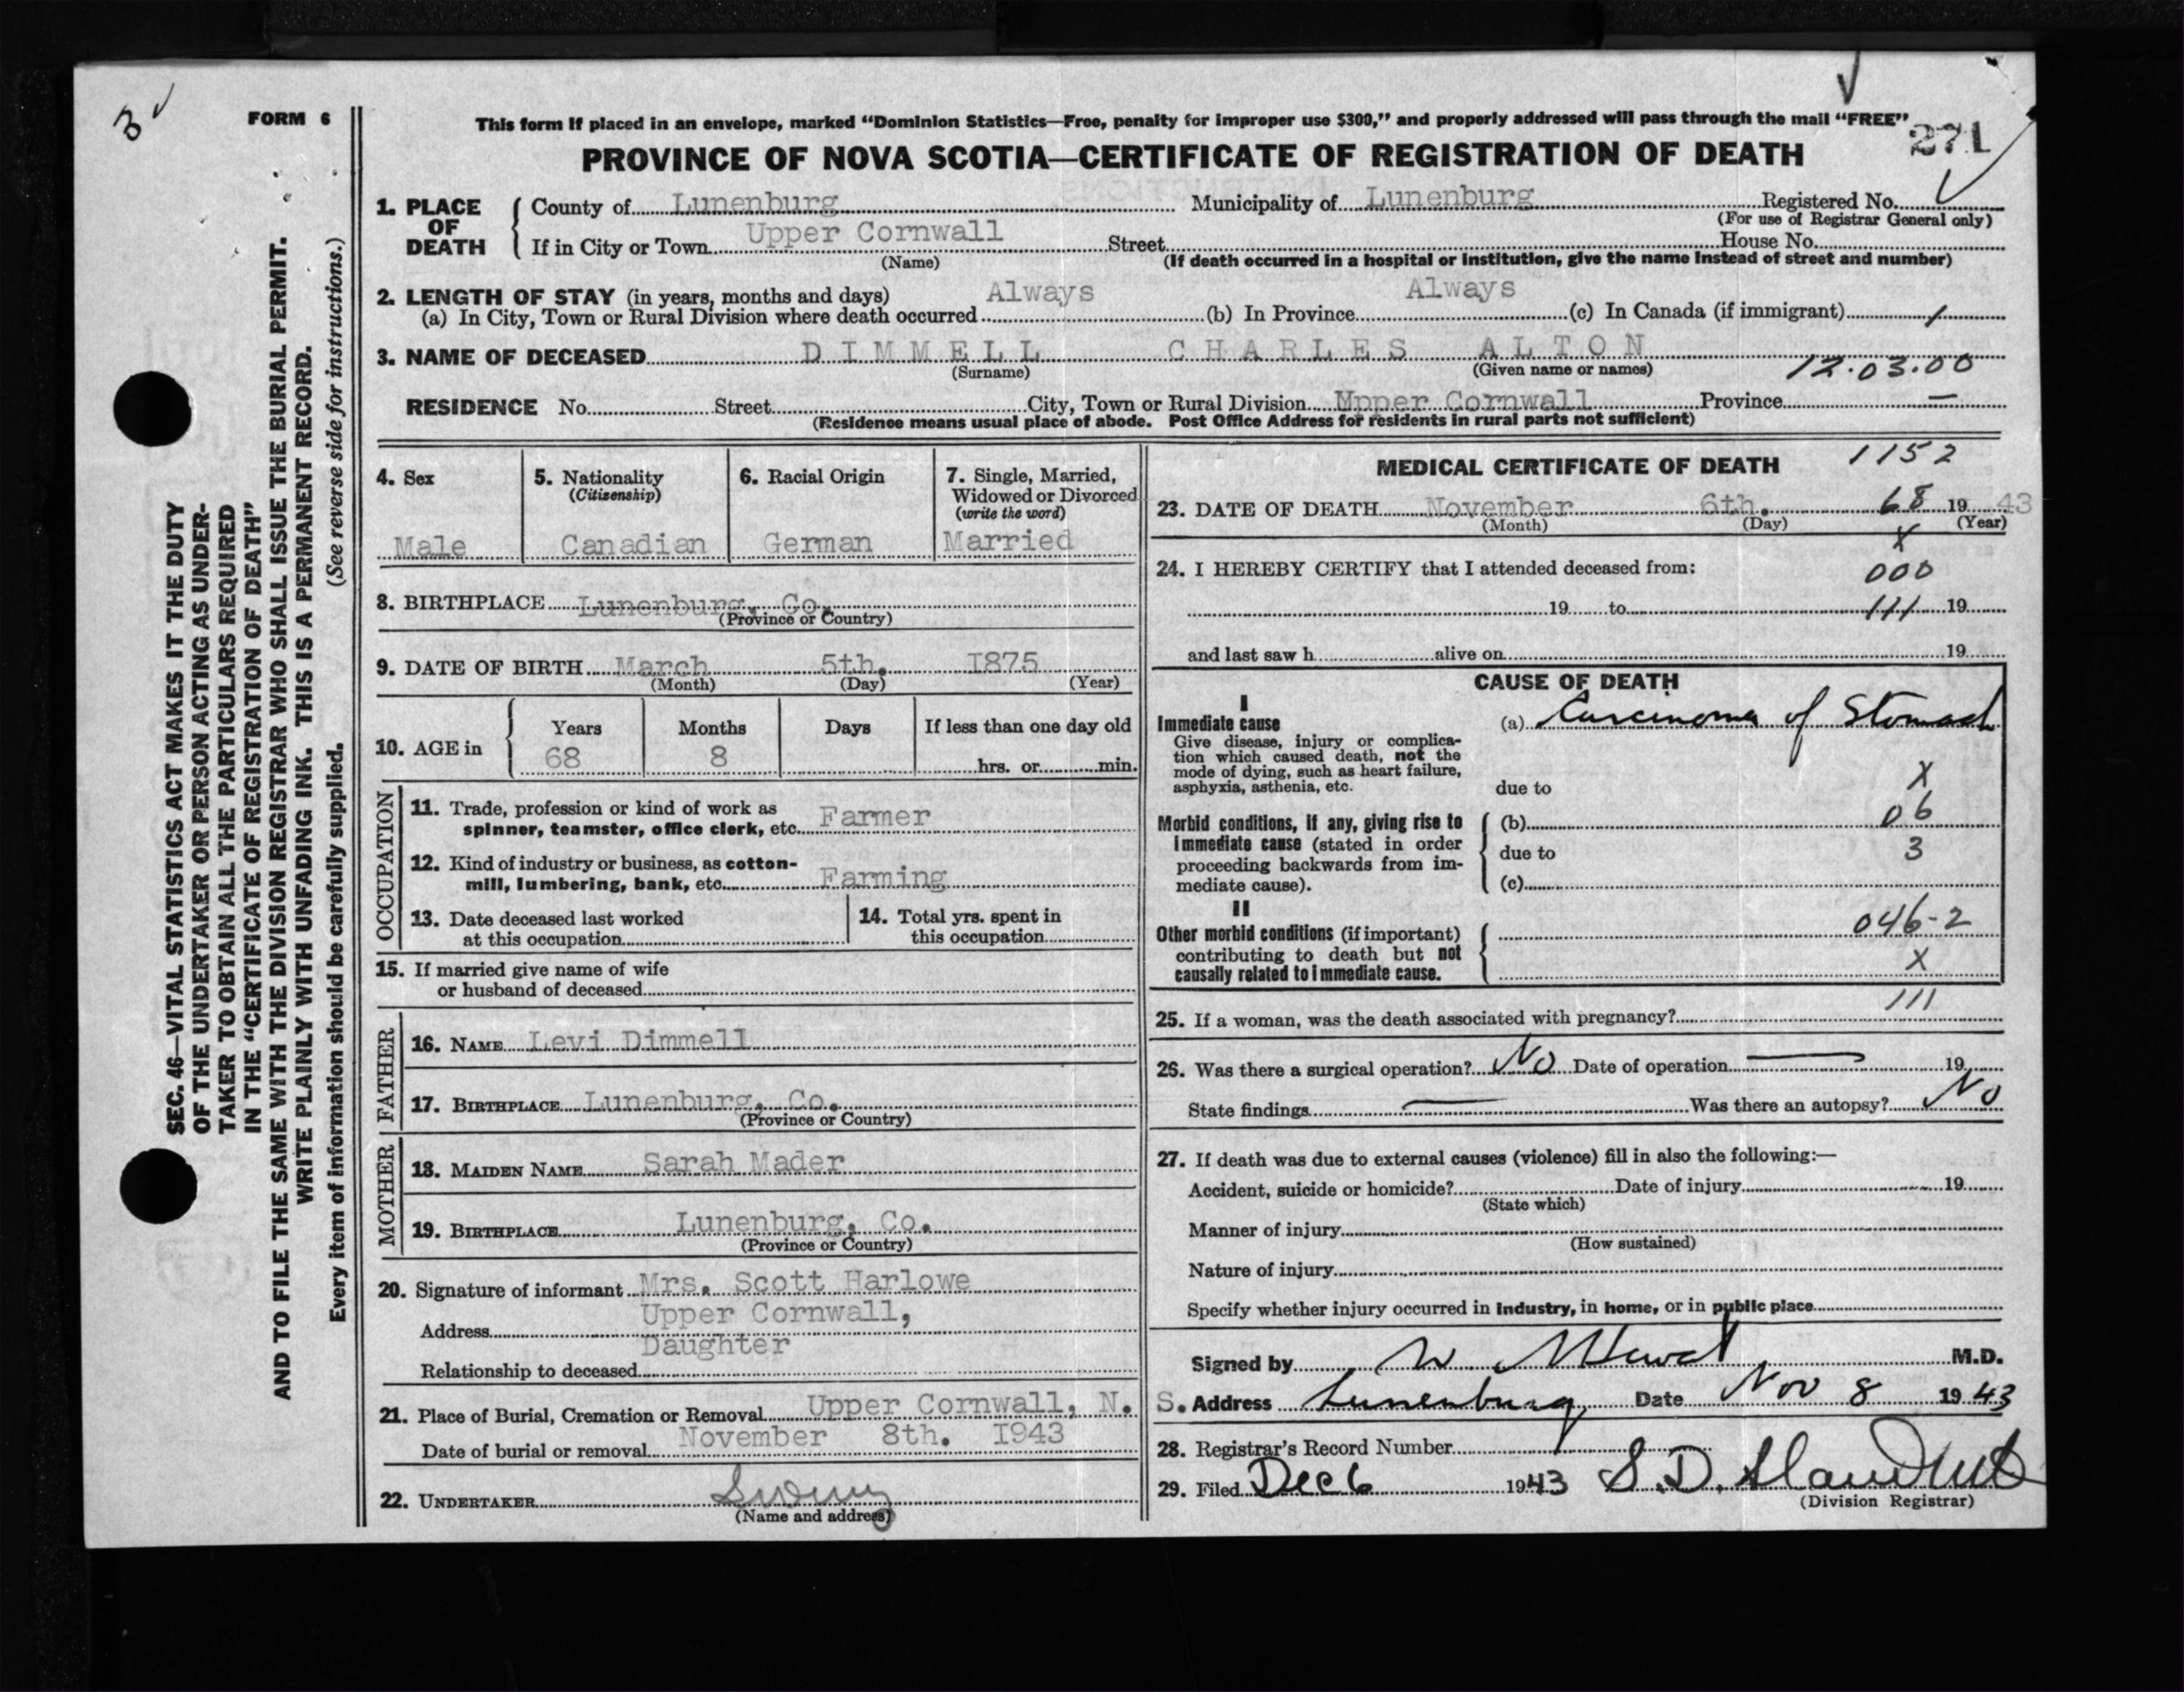 3 ✓
FORM 6
SEC. 46—VITAL STATISTICS ACT MAKES IT THE DUTY
OF THE UNDERTAKER OR PERSON ACTING AS UNDER-
TAKER TO OBTAIN ALL THE PARTICULARS REQUIRED
IN THE "CERTIFICATE OF REGISTRATION OF DEATH"
AND TO FILE THE SAME WITH THE DIVISION REGISTRAR WHO SHALL ISSUE THE BURIAL PERMIT.
WRITE PLAINLY WITH UNFADING INK. THIS IS A PERMANENT RECORD.
Every item of information should be carefully supplied. (See reverse side for instructions.)
This form if placed in an envelope, marked "Dominion Statistics—Free, penalty for improper use $300," and properly addressed will pass through the mail "FREE"
PROVINCE OF NOVA SCOTIA—CERTIFICATE OF REGISTRATION OF DEATH 271
1. PLACE OF DEATH
County of Lunenburg Municipality of Lunenburg Registered No.
(For use of Registrar General only)
If in City or Town Upper Cornwall Street House No.
(Name) (If death occurred in a hospital or institution, give the name instead of street and number)
2. LENGTH OF STAY (in years, months and days)
(a) In City, Town or Rural Division where death occurred Always (b) In Province Always (c) In Canada (if immigrant) /
3. NAME OF DECEASED DIMMELL CHARLES ALTON
(Surname) (Given name or names) 12.03.00
RESIDENCE No. Street City, Town or Rural Division Mpper Cornwall Province —
(Residence means usual place of abode. Post Office Address for residents in rural parts not sufficient)
4. Sex
Male
5. Nationality
(Citizenship)
Canadian
6. Racial Origin
German
7. Single, Married,
Widowed or Divorced
(write the word)
Married
8. BIRTHPLACE Lunenburg, Co.
(Province or Country)
9. DATE OF BIRTH March 5th. I875
(Month) (Day) (Year)
10. AGE in Years Months Days If less than one day old
68 8 hrs. or min.
OCCUPATION
11. Trade, profession or kind of work as
spinner, teamster, office clerk, etc. Farmer
12. Kind of industry or business, as cotton-
mill, lumbering, bank, etc. Farming
13. Date deceased last worked
at this occupation
14. Total yrs. spent in
this occupation
15. If married give name of wife
or husband of deceased
FATHER
16. NAME Levi Dimmell
17. BIRTHPLACE Lunenburg, Co.
(Province or Country)
MOTHER
18. MAIDEN NAME Sarah Mader
19. BIRTHPLACE Lunenburg, Co.
(Province or Country)
20. Signature of informant Mrs. Scott Harlowe
Address Upper Cornwall,
Relationship to deceased Daughter
21. Place of Burial, Cremation or Removal Upper Cornwall, N. S.
Date of burial or removal November 8th. I943
22. UNDERTAKER
(Name and address)
MEDICAL CERTIFICATE OF DEATH 1152
23. DATE OF DEATH November 6th. 68 19 43
(Month) (Day) (Year)
X
24. I HEREBY CERTIFY that I attended deceased from: 000
19 to 111 19
and last saw h alive on 19
CAUSE OF DEATH
I
Immediate cause (a) Carcinoma of Stomach
Give disease, injury or complica-
tion which caused death, not the
mode of dying, such as heart failure,
asphyxia, asthenia, etc. due to X
Morbid conditions, if any, giving rise to (b) 06
immediate cause (stated in order due to 3
proceeding backwards from im-
mediate cause). (c)
II
Other morbid conditions (if important) 046-2
contributing to death but not
causally related to immediate cause. X
25. If a woman, was the death associated with pregnancy? 111
26. Was there a surgical operation? No Date of operation — 19
State findings — Was there an autopsy? No
27. If death was due to external causes (violence) fill in also the following:—
Accident, suicide or homicide? Date of injury 19
(State which)
Manner of injury
(How sustained)
Nature of injury
Specify whether injury occurred in industry, in home, or in public place
Signed by W M.D.
Address Lunenburg Date Nov 8 19 43
28. Registrar's Record Number
29. Filed Dec 6 1943 S.D.
(Division Registrar)